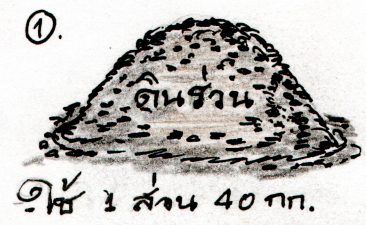 ①.
ดินร่วน
ใช้ 1 ส่วน 40 กก.